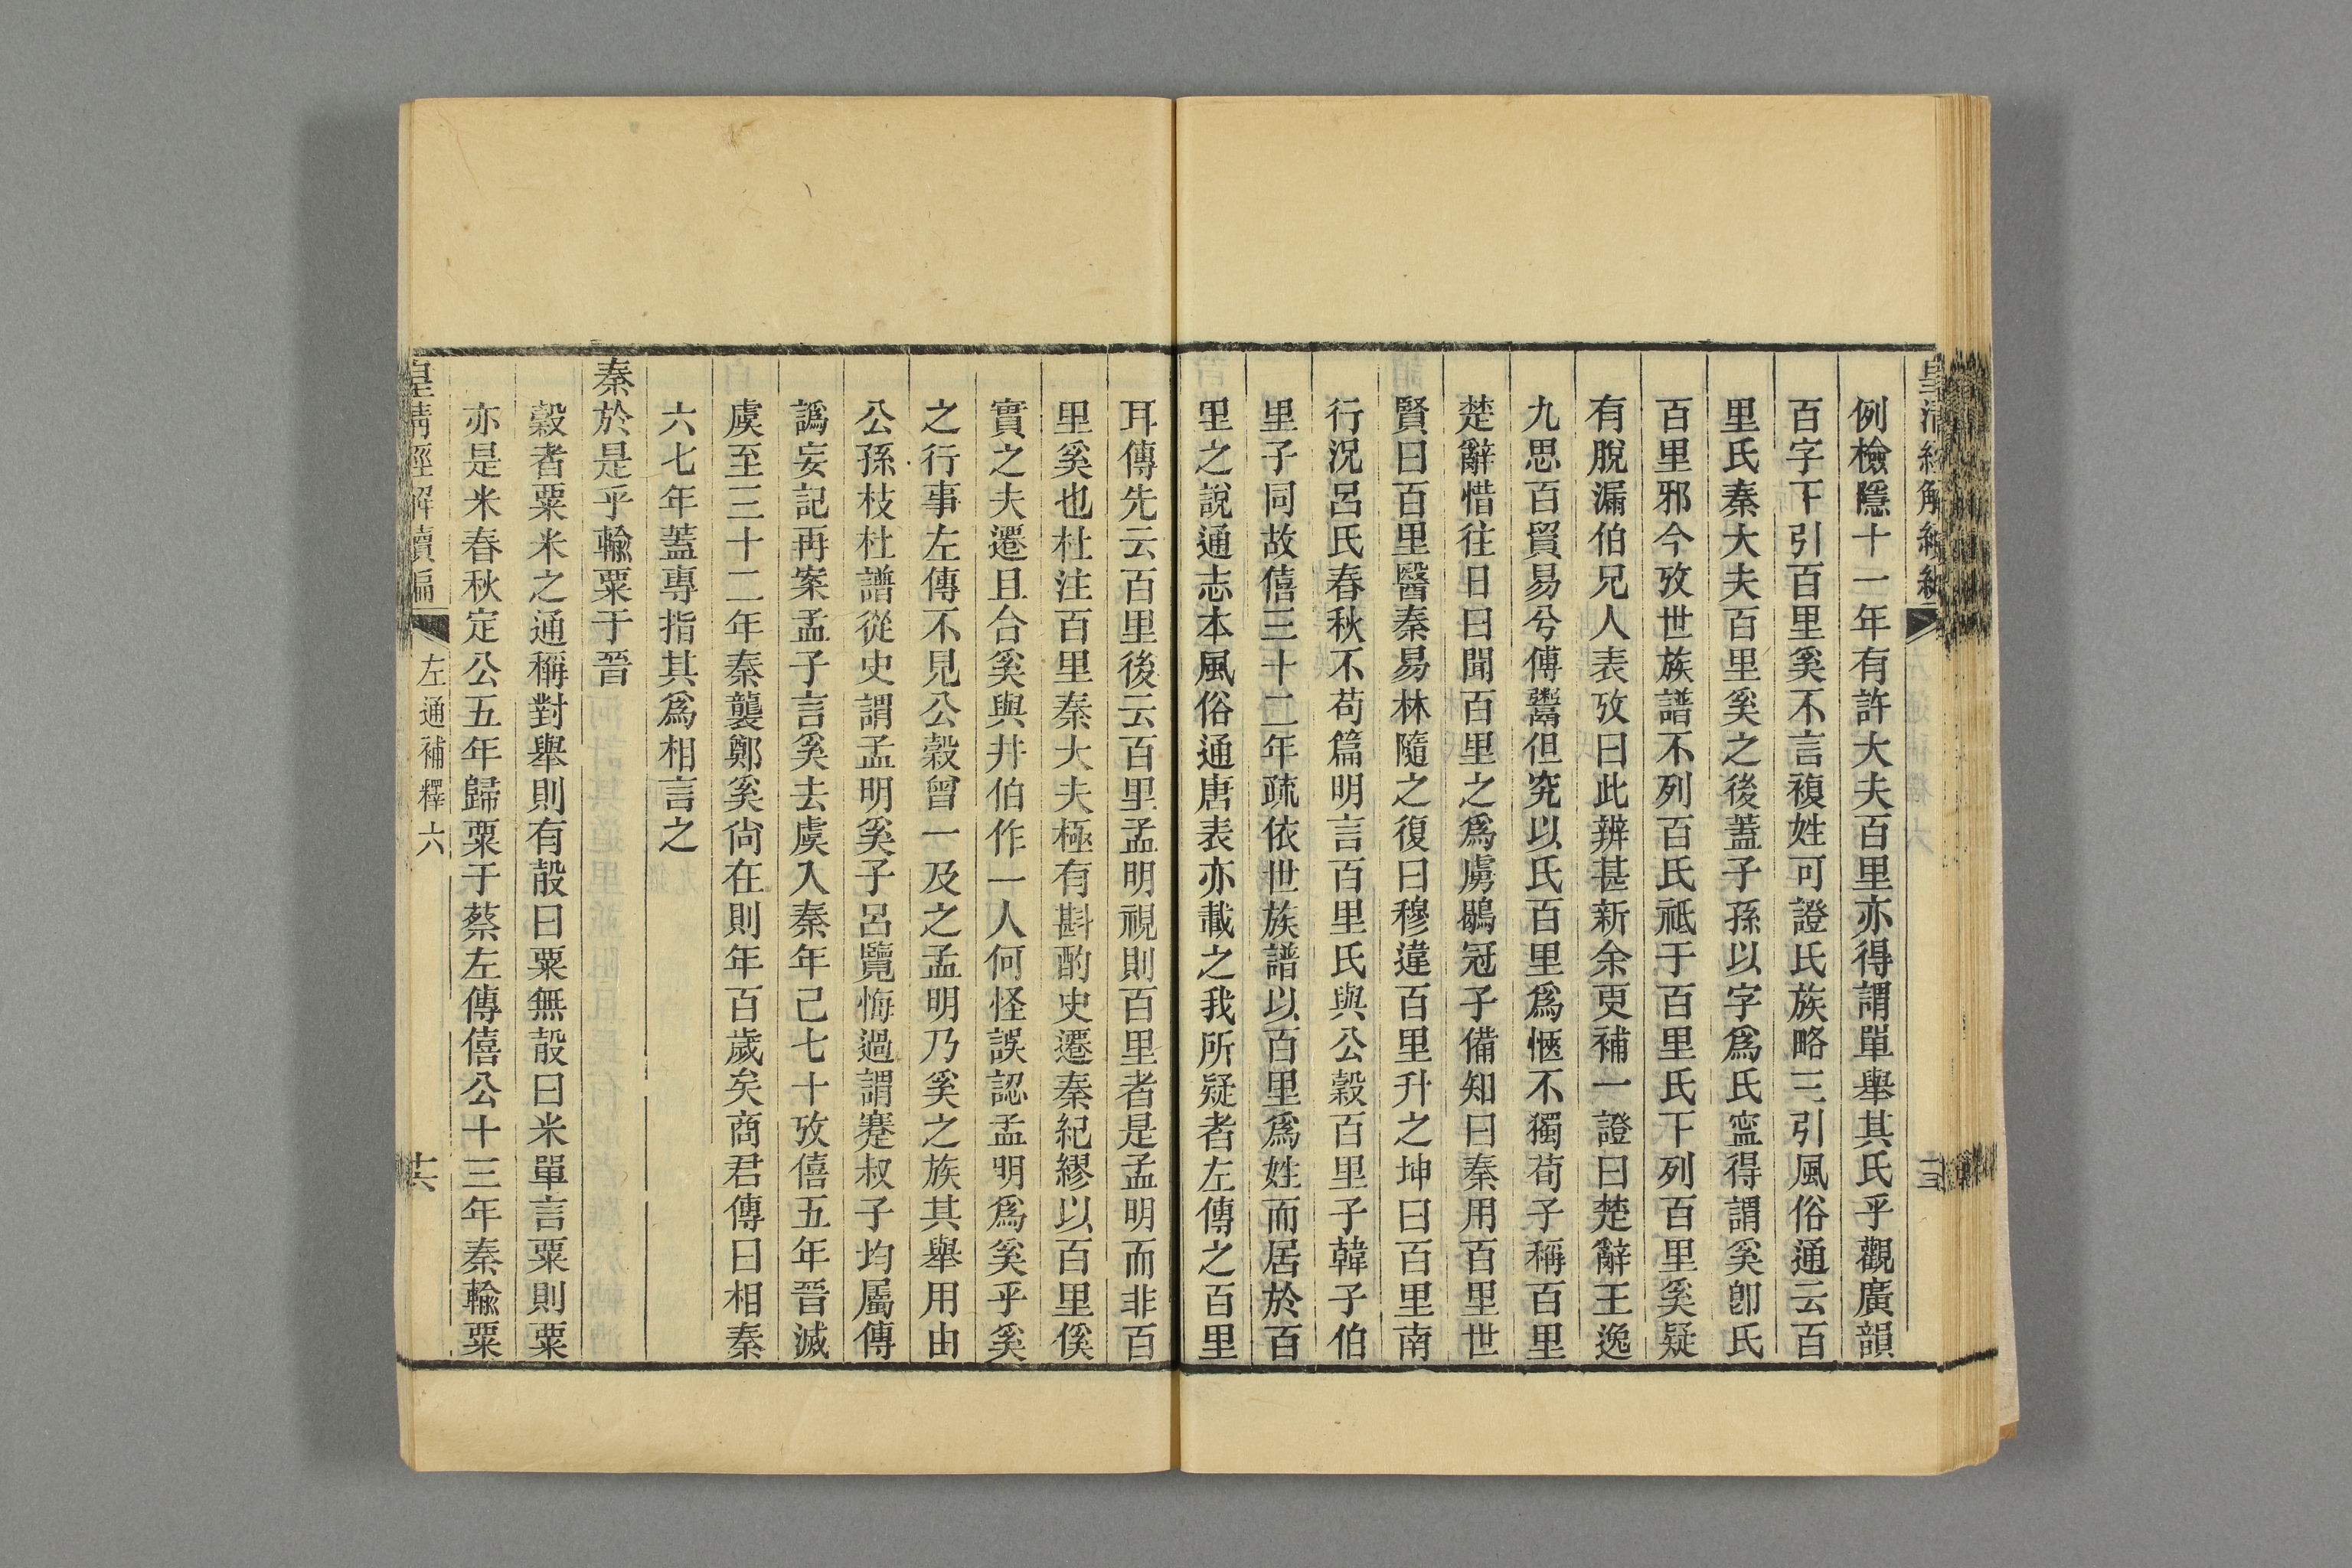 例檢隱十一年有許大夫百里亦得謂單舉其氏乎觀廣韻
百字下引百里奚不言複姓可證氏族略三引風俗通云百
里氏秦大夫百里奚之後蓋子孫以字爲氏寍得謂奚卽氏
百里邪今攷世族譜不列百氏祗于百里氏下列百里奚疑
有脫漏伯兄人表攷曰此辨甚新余更補一證曰楚辭王逸
九思百貿易兮傅鬻但究以氏百里爲愜不獨荀子稱百里
楚辭惜往日曰聞百里之爲虜鶡冠子備知曰秦用百里世
賢曰百里醫秦易林隨之復曰穆違百里升之坤曰百里南
行況呂氏春秋不苟篇明言百里氏與公穀百里子韓子伯
里子同故僖三十二年疏依世族譜以百里爲姓而居於百
里之說通志本風俗通唐表亦載之我所疑者左傳之百里
耳傳先云百里後云百里孟明視則百里者是孟明而非百
里奚也杜注百里秦大夫極有斟酌史遷秦紀繆以百里傒
實之夫遷且合奚與井伯作一人何怪誤認孟明爲奚乎奚
之行事左傳不見公穀曾一及之孟明乃奚之族其舉用由
公孫枝杜譜從史謂孟明奚子呂覽悔過謂蹇叔子均屬傳
譌妄記再案孟子言奚去虞入秦年已七十攷僖五年晉滅
虞至三十二年秦襲鄭奚尙在則年百歲矣商君傳曰相秦
六七年蓋專指其爲相言之
秦於是乎輸粟于晉
穀者粟米之通稱對舉則有㱿曰粟無㱿曰米單言粟則粟
亦是米春秋定公五年歸粟于蔡左傳僖公十三年秦輸粟
皇清經解續編
左通補釋六